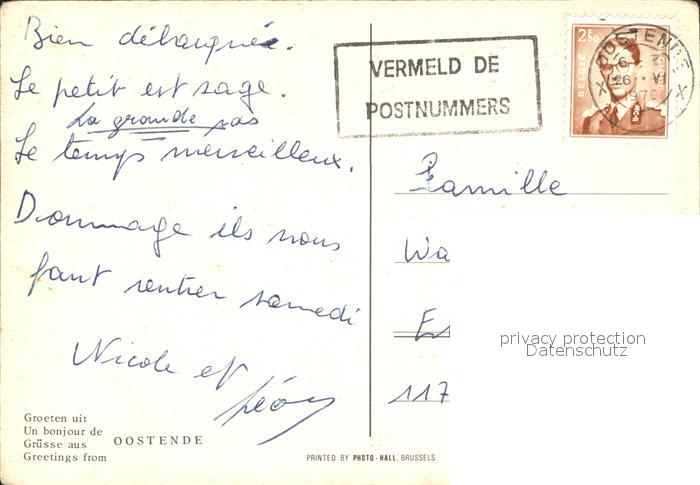 Bien débarquée.
Le petit est sage.
La grande pas
Le temps merveilleux.
Dommage ils nous
faut rentrer samedi
Nicole et Léon
Groeten uit
Un bonjour de
Grüsse aus
Greetings from
OOSTENDE
PRINTED BY PHOTO-HALL, BRUSSELS
VERMELD DE
POSTNUMMERS
2F50
BELGIE
OOSTENDE
26 VI
1970
X X
Famille
Wa
Es
117
privacy protection
Datenschutz